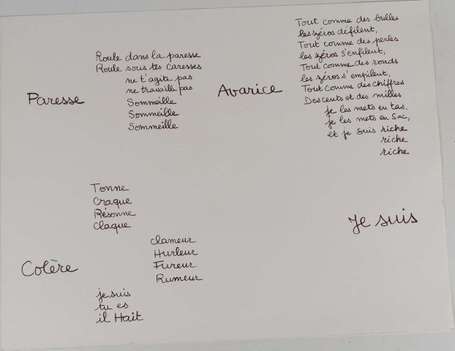 Paresse
Roule dans la paresse
Roule sous tes caresses
ne t'agite pas
ne travaille pas
Sommeille
Sommeille
Sommeille
Avarice
Tout comme des bulles
les zéros défilent,
Tout comme des perles
les zéros s'enfilent,
Tout comme des ronds
les zéros s'empilent,
Tout comme des chiffres
Des cents et des milles
je les mets en tas.
je les mets en sac,
et je suis riche
riche
riche
Colère
Tonne
Craque
Résonne
Claque
Clameur
Hurleur
Fureur
Rumeur
je suis
tu es
il Hait
Je suis